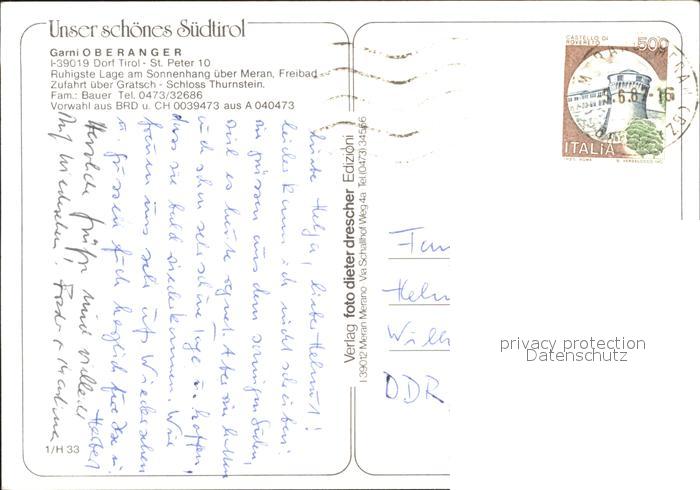 Unser schönes Südtirol
Garni OBERANGER
I-39019 Dorf Tirol - St. Peter 10
Ruhigste Lage am Sonnenhang über Meran, Freibad -
Zufahrt über Gratsch - Schloss Thurnstein.
Fam.: Bauer Tel. 0473/32686
Vorwahl aus BRD u. CH 0039473 aus A 040473
Liebe Helga, lieber Helmut!
leider kann ich nicht schreiben:
wir grüssen aus dem sonnigen Süden,
weil es heute regnet. Aber wir hatten
auch schon sehr schöne Tage u. hoffen,
dass sie bald wiederkommen. Wir
freuen uns sehr aufs Wiedersehen
u. grüssen Euch herzlich
Herbert
Herzliche Grüße und
Auf Wiedersehen! + Martina
1/H 33
Verlag foto dieter drescher Edizioni
I-39012 Meran Merano Via Schallhof Weg 4a Tel.(0473) 34566
CASTELLO DI
ROVERETO
500
MERANO
5.6.87-16
ITALIA
Fam
Helm
Will
DDR
privacy protection
Datenschutz